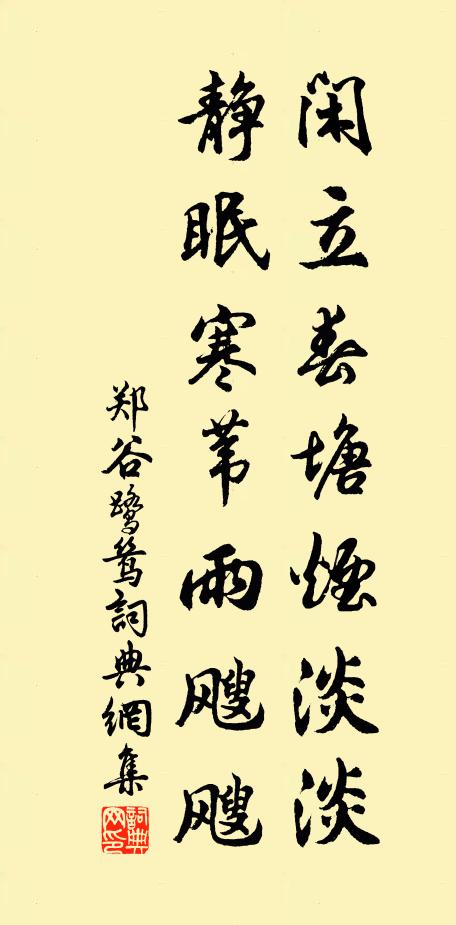 闲立春塘煙淡淡
静眠寒苇雨飕飕
郑谷鹭鸶詞典網集
詞典网印